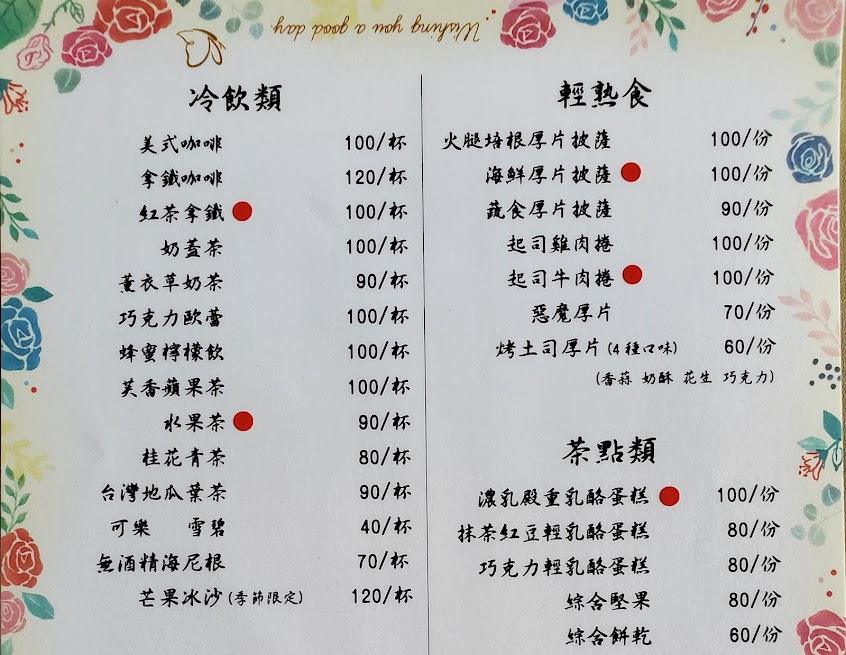 Wishing you a good day.
冷飲類
美式咖啡 100/杯
拿鐵咖啡 120/杯
紅茶拿鐵 100/杯
奶蓋茶 100/杯
薰衣草奶茶 90/杯
巧克力歐蕾 100/杯
蜂蜜檸檬飲 100/杯
芙香蘋果茶 100/杯
水果茶 90/杯
桂花青茶 80/杯
台灣地瓜葉茶 90/杯
可樂 雪碧 40/杯
無酒精海尼根 70/杯
芒果冰沙(季節限定) 120/杯
輕熟食
火腿培根厚片披薩 100/份
海鮮厚片披薩 100/份
蔬食厚片披薩 90/份
起司雞肉捲 100/份
起司牛肉捲 100/份
惡魔厚片 70/份
烤土司厚片(4種口味) 60/份
(香蒜 奶酥 花生 巧克力)
茶點類
濃乳殿重乳酪蛋糕 100/份
抹茶紅豆輕乳酪蛋糕 80/份
巧克力輕乳酪蛋糕 80/份
綜合堅果 80/份
綜合餅乾 60/份